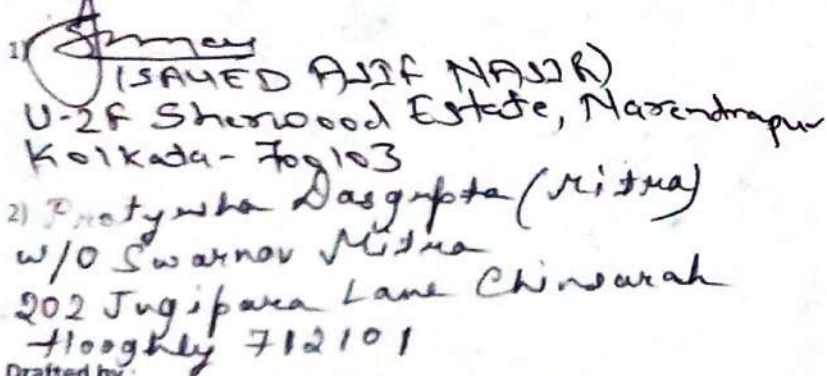 1)
(SAYED ASIF NASIR)
U-2F Sherwood Estate, Narendrapur
Kolkata - 700103
2) Pratyusha Dasgupta (Mitra)
w/o Swarnav Mitra
202 Jugipara Lane Chinsurah
Hooghly 712101
Drafted by